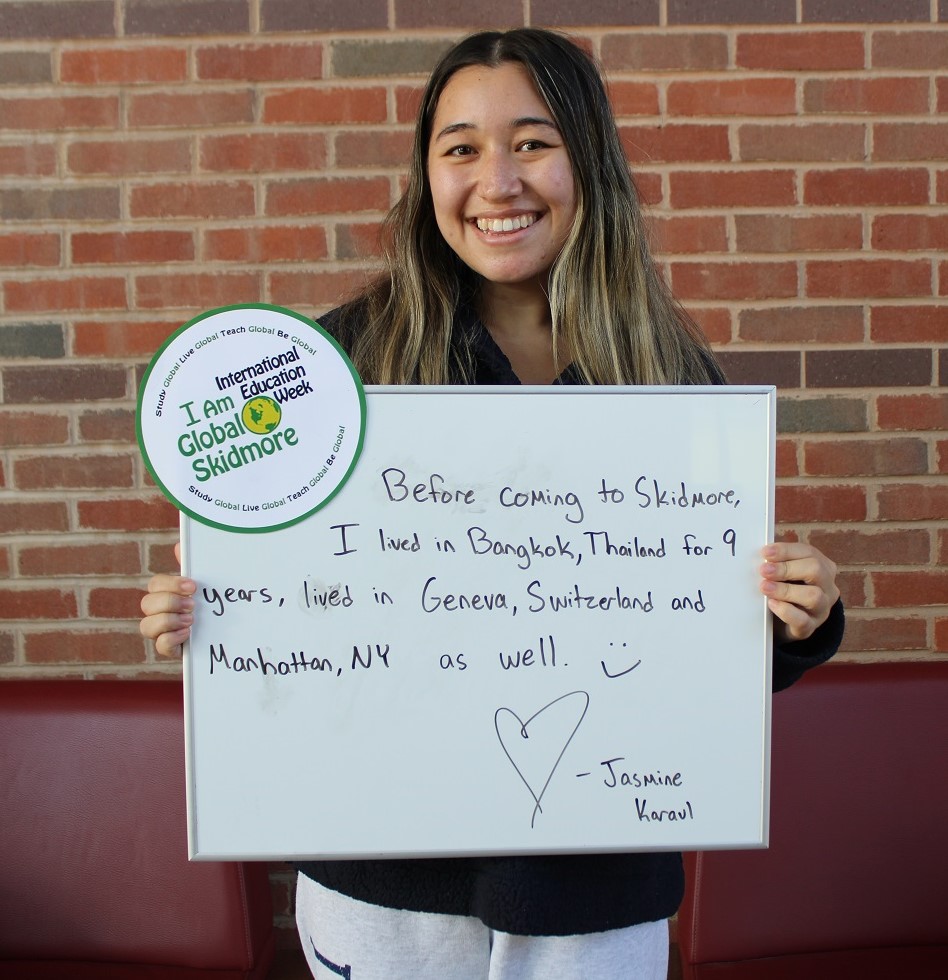 Study Global Live Global Teach Global Be Global
International
Education
Week
I Am
Global
Skidmore
Study Global Live Global Teach Global Be Global
Before coming to Skidmore,
I lived in Bangkok, Thailand for 9
years, lived in Geneva, Switzerland and
Manhattan, NY as well.
- Jasmine
Karaul